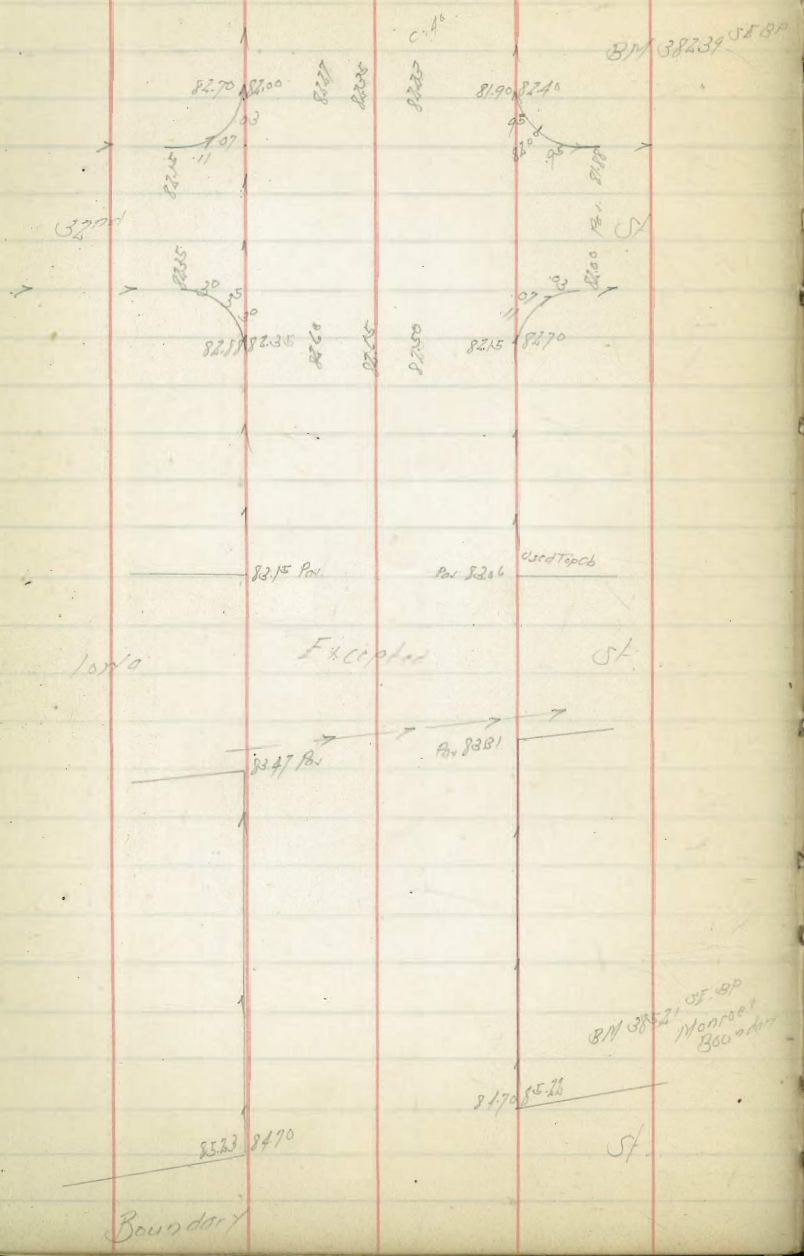 BM 38239 SE BP
82.70 82.00
82.27
82.35
82.27
81.90 82.40
.03
.07
.11
.95
82.00
.95
82.15
81.88
32nd
St
82.35
.30
.35
.30
82.00 Pav.
.03
.07
.11
82.88 82.35
82.60
82.65
82.50
82.15 82.70
83.15 Pav.
Pav 83.06
Used Top Cb
Iowa
Excepted
St.
83.47 Pav
Pav 83.31
BM 38521 SE BP
Monroe &
Boundary
84.70 85.22
85.23 84.70
St.
Boundary